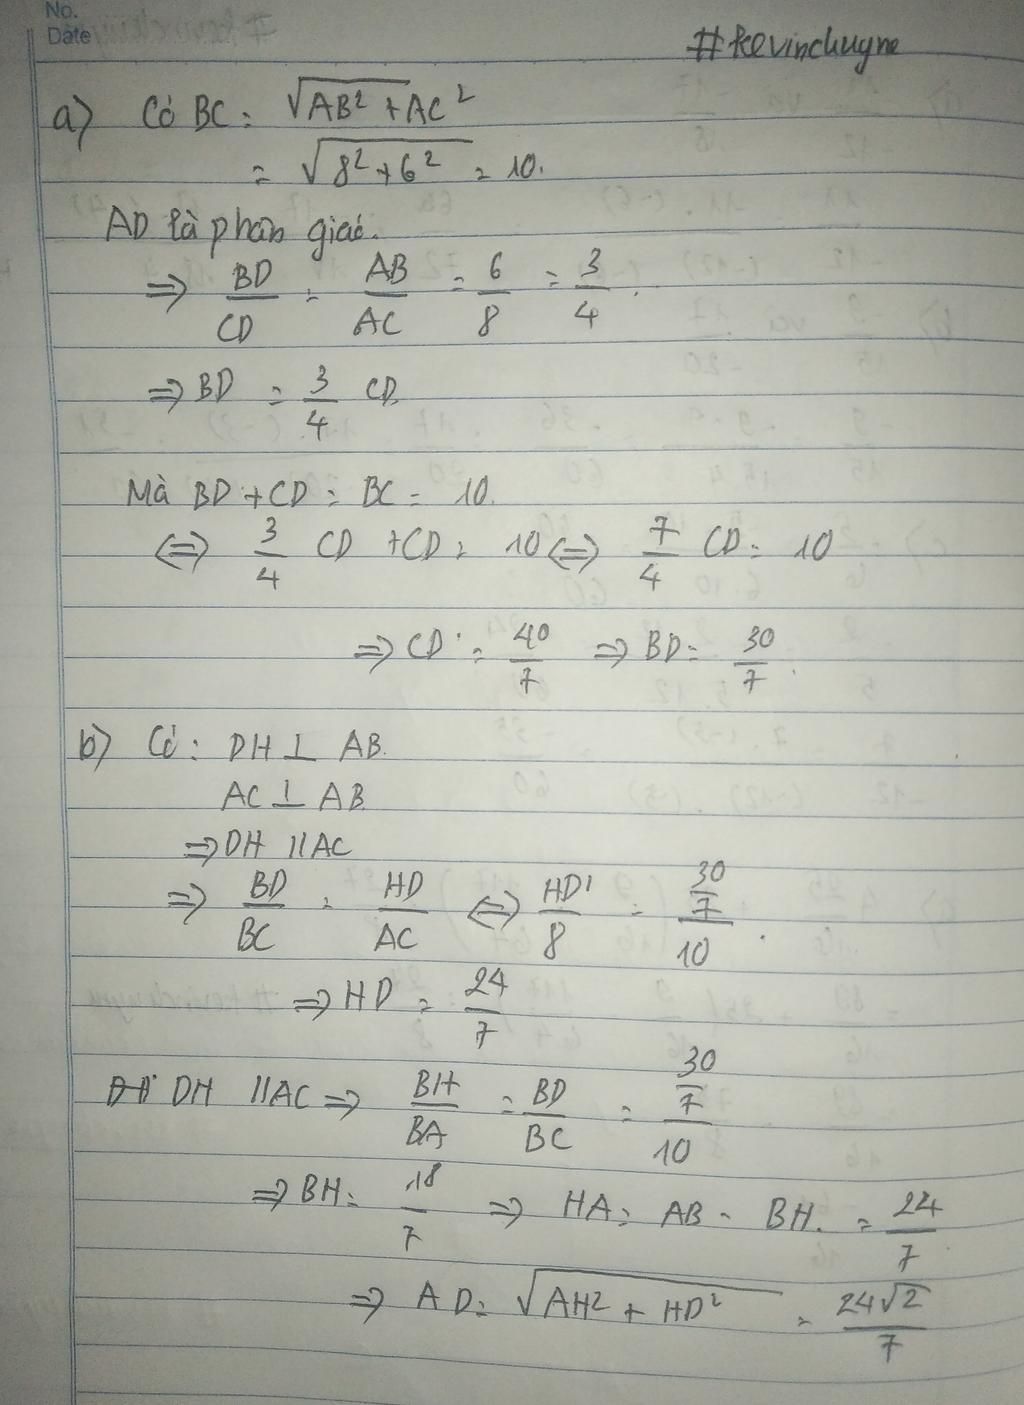 No.
Date
#kevinchuyne
a) Có BC = √(AB² + AC²)
= √(8² + 6²) = 10.
AD là phân giác.
⇒ BD/CD = AB/AC = 6/8 = 3/4.
⇒ BD = 3/4 CD
Mà BD + CD = BC = 10.
⇔ 3/4 CD + CD = 10 ⇔ 7/4 CD = 10
⇒ CD = 40/7 ⇒ BD = 30/7.
b) Có: DH ⊥ AB.
AC ⊥ AB
⇒ DH // AC
⇒ BD/BC = HD/AC ⇔ HD/8 = (30/7)/10.
⇒ HD = 24/7
DH // AC ⇒ BH/BA = BD/BC = (30/7)/10
⇒ BH = 18/7 ⇒ HA = AB - BH. = 24/7
⇒ AD = √(AH² + HD²) = 24√2/7